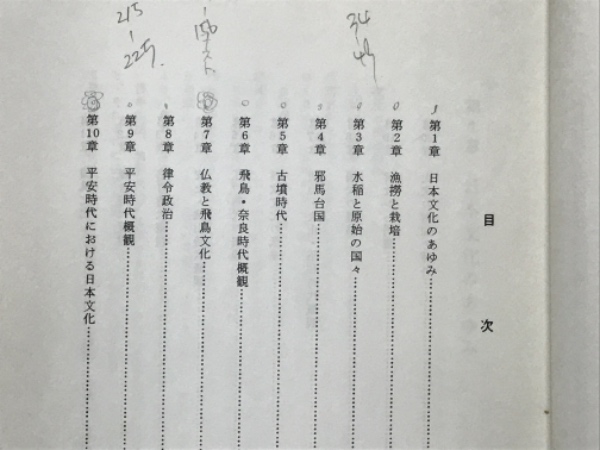 目次
第1章 日本文化のあゆみ
第2章 漁撈と栽培
第3章 水稲と原始の国々
第4章 邪馬台国
第5章 古墳時代
第6章 飛鳥・奈良時代概観
第7章 仏教と飛鳥文化
第8章 律令政治
第9章 平安時代概観
第10章 平安時代における日本文化